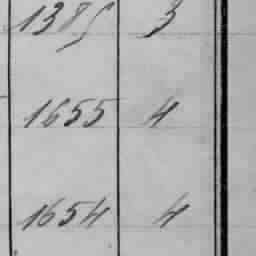 1385 3
1655 4
1654 4